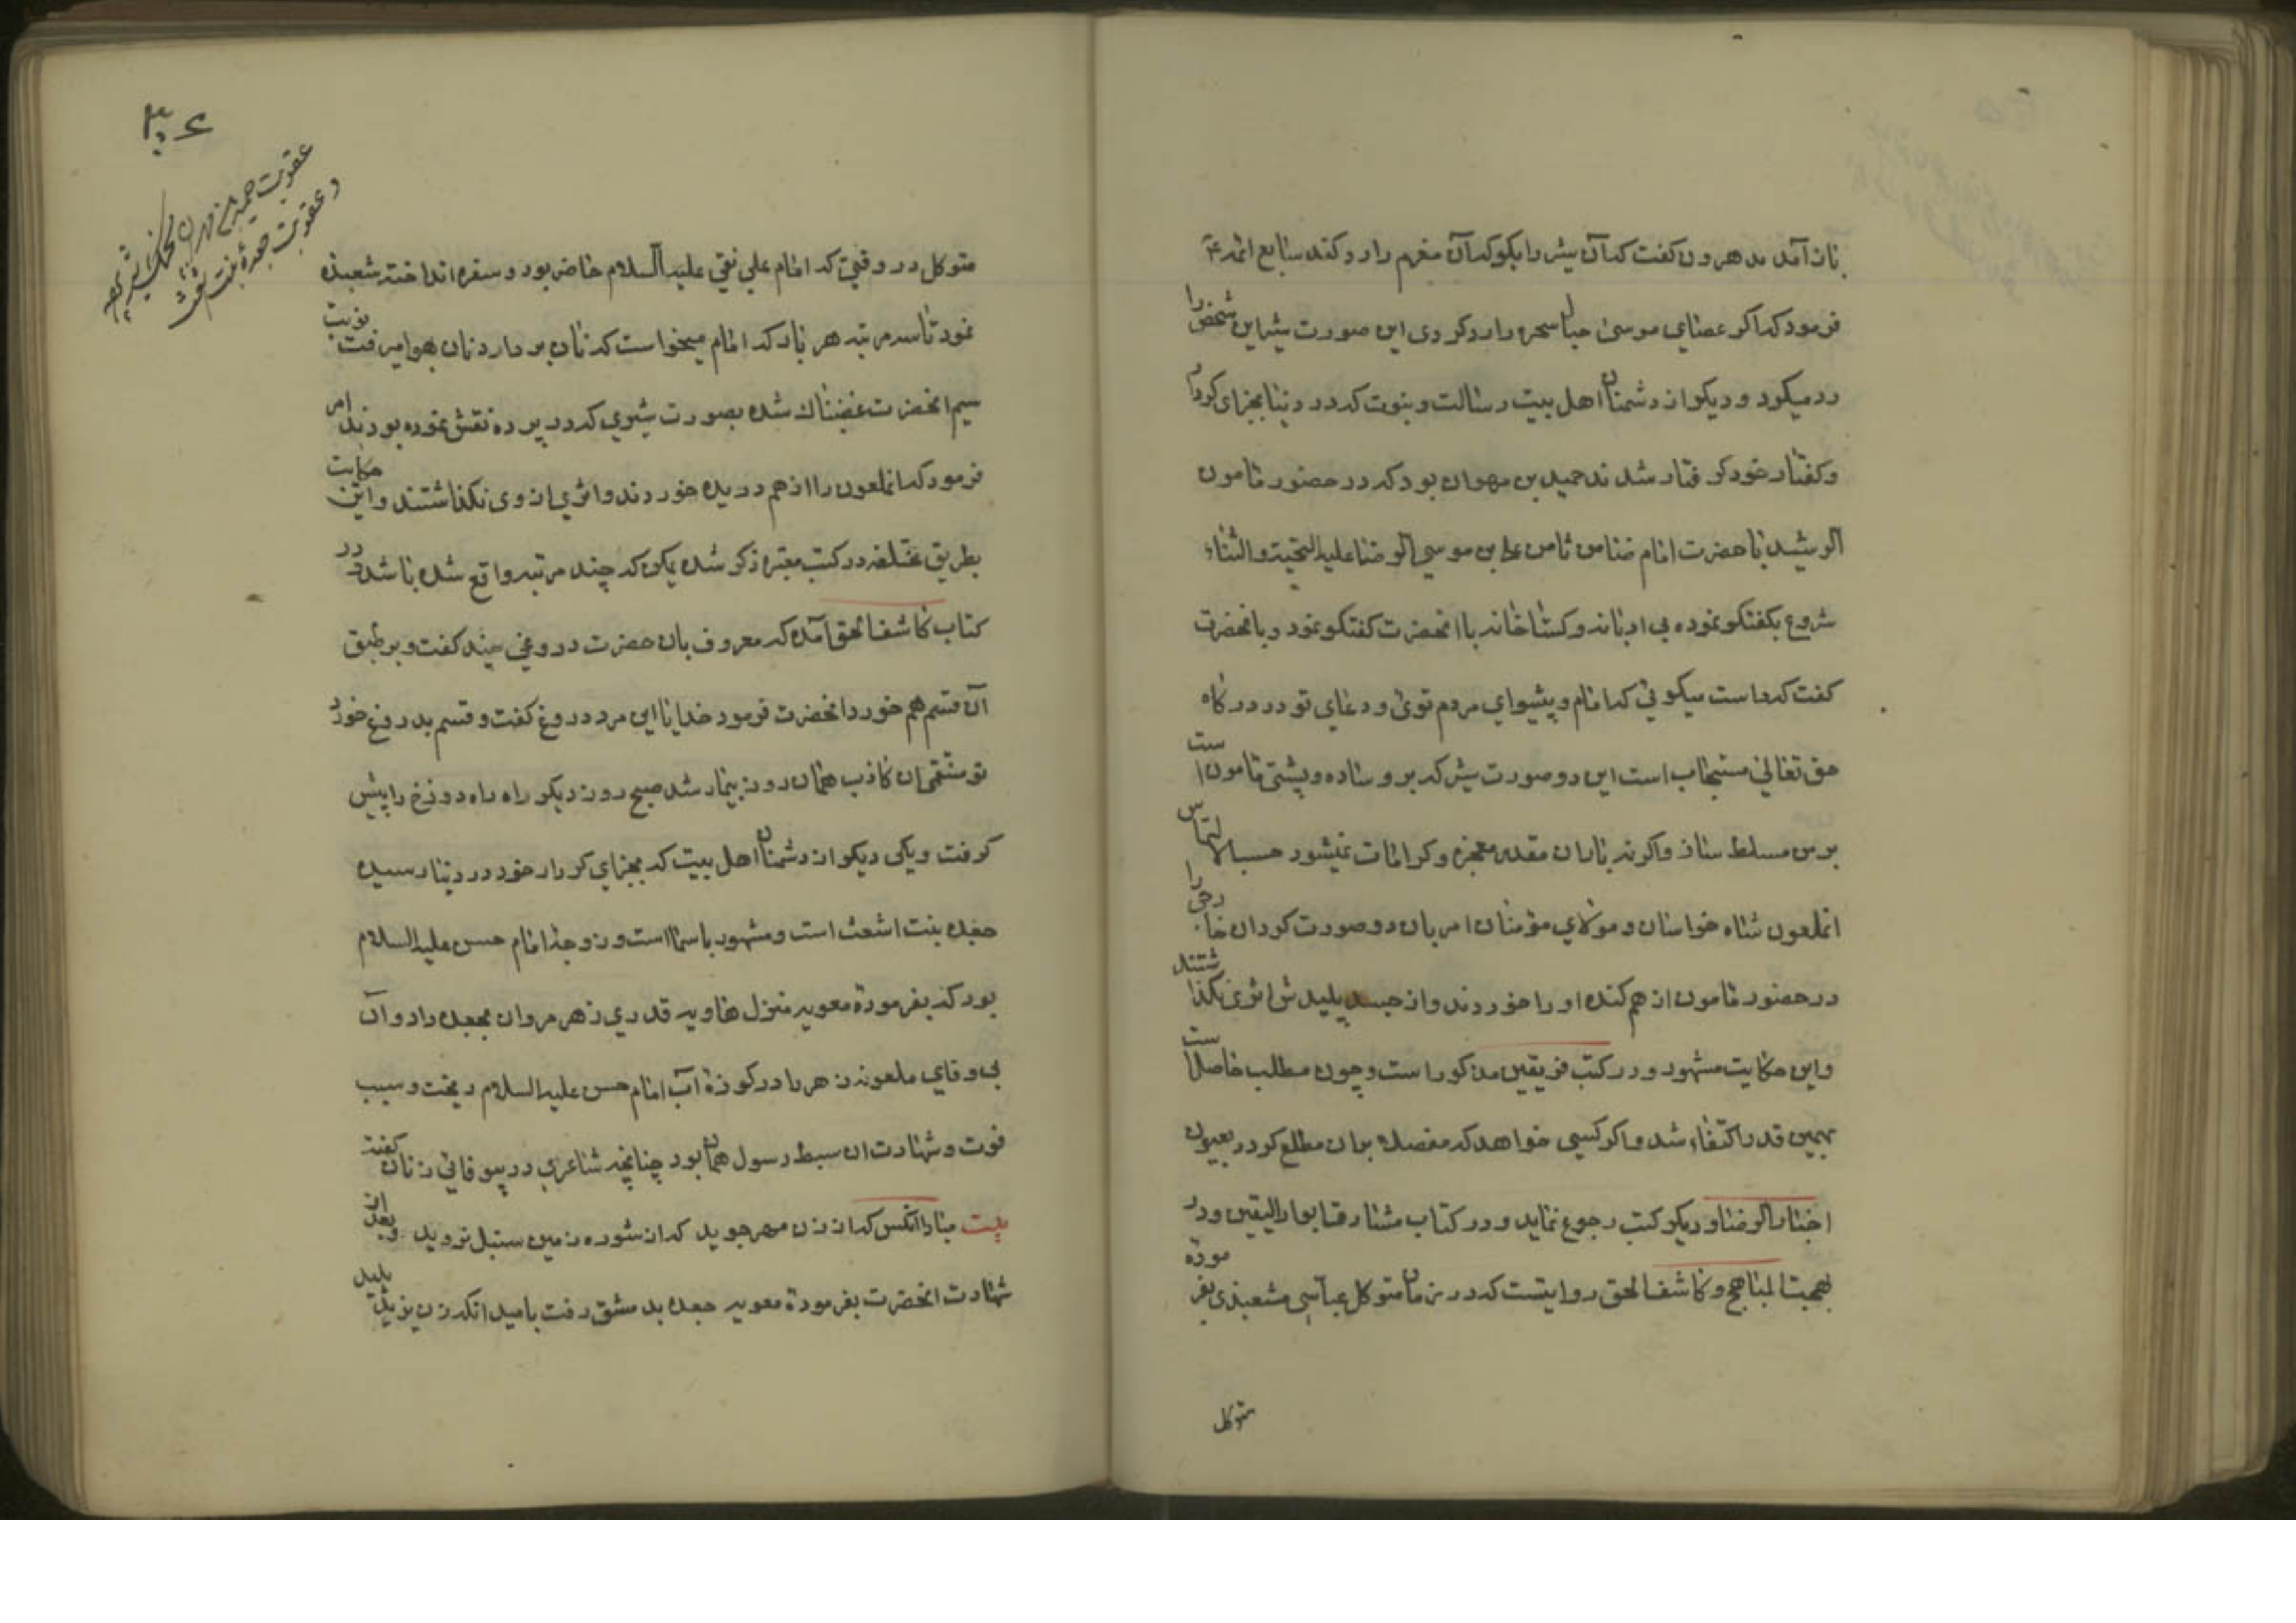 بازآمد هرون کفت که آن شیر را بکو که آن مغرم را رد کند سابع ائمه ع
فرمود که اکر عصای موسی حبال سحره را رد کردی این صورت شیر این شخص را
رد میکرد و دیکر از دشمنان اهل بیت رسالت و نبوت که در دنیا بجزای کردار
و کفتار خود کرفتار شدند حمید بن مهران بود که در حضور مامون
الرشید با حضرت امام ضامن ثامن علی بن موسی الرضا علیه التحیة والثناء
شروع بکفتکو نموده بی ادبانه و کستاخانه با انحضرت کفتکو نمود و بانحضرت
کفت که راست میکویی که امام و پیشوای مردم توئی و دعای تو در درکاه
حق تعالی مستجاب است این دو صورت شیر که بر وساده و پشتی مامون است
بر من مسلط ساز واکرنه باران مقدمه معجزه و کرامات نمیشود حسب الالتماس
انملعون شاه خراسان و مولای مؤمنان امر بان دو صورت کرد ان خارجی را
در حضور مامون از هم کنده او را خوردند و از جسد پلیدش اثری نکذاشتند
واین حکایت مشهور و در کتب فریقین مذکور است و چون مطلب حاصل است
بهمین قدر اکتفاء شد و اکر کسی خواهد که مفصلا بران مطلع کردد بعیون
اخبار الرضا و دیکر کتب رجوع نماید و در کتاب مشارق انوار الیقین و در
بهجت المناهج و کاشف الحق روایتست که در زمان متوکل عباسی مشعبذی بفرموده
متوکل
۳۰۶
عقوبت حمید بن مهران
و عقوبت جعدۀ بنت اشعث
متوکل در وقتی که امام علی نقی علیه السلام حاضر بود و سفره انداخته شعبذه
نمود تا سه مرتبه هر بار که امام میخواست که نان بردارد نان بهوا میرفت نوبت
سیم انحضرت غضبناك شده بصورت شیری که در پرده نقش نموده بودند امر
فرمود که انملعون را از هم دریده خوردند و اثری از وی نکذاشتند واین حکایت
بطریق مختلفه در کتب معتبره ذکر شده یمکن که چند مرتبه واقع شده باشد و در
کتاب کاشف الحق آمده که معروف بان حضرت دروغی چند کفت و بر طبق
آن قسم هم خورد انحضرت فرمود خدایا این مرد دروغ کفت و قسم بدروغ خورد
تو منتقمی ان کاذب همان روز بیمار شد صبح روز دیکر راه راه دوزخ را پیش
کرفت و یکی دیکر از دشمنان اهل بیت که بجزای کردار خود در دنیا رسیده
جعده بنت اشعث است و مشهور باسما است و زوجۀ امام حسن علیه السلام
بود که بفرمودۀ معویه منزل هاویه قدری زهر مروان بجعده داد و آن
بی وفای ملعونه زهر را در کوزۀ آب امام حسن علیه السلام ریخت و سبب
فوت و شهادت ان سبط رسول همان بود چنانچه شاعری در بیوفائی زنان کفته
بیت مبادا انکس که از زن مهر جوید که از شوره زمین سنبل نروید وبعد از
شهادت انحضرت بفرمودۀ معویه جعده بدمشق رفت بامید انکه زن یزید پلید